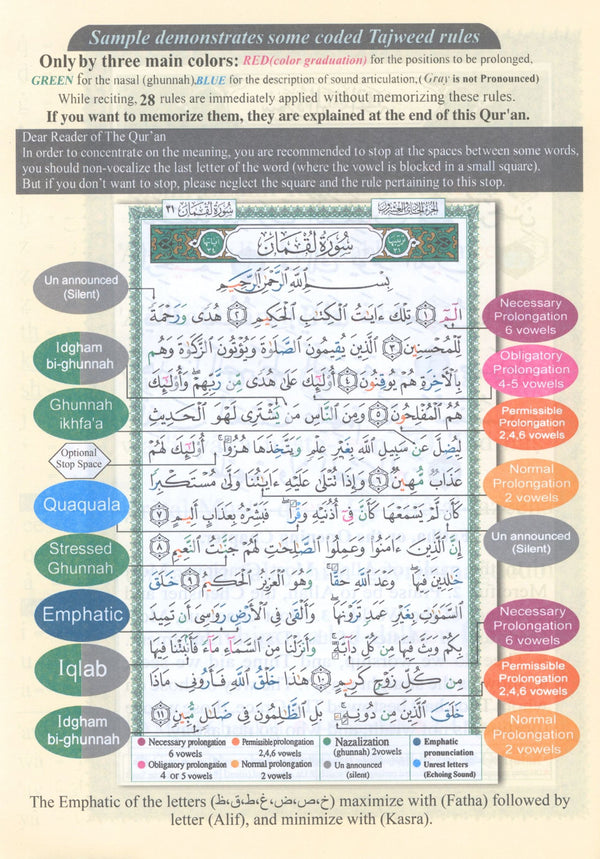 Sample demonstrates some coded Tajweed rules
Only by three main colors: RED(color graduation) for the positions to be prolonged,
GREEN for the nasal (ghunnah),BLUE for the description of sound articulation,(Gray is not Pronounced)
While reciting, 28 rules are immediately applied without memorizing these rules.
If you want to memorize them, they are explained at the end of this Qur'an.
Dear Reader of The Qur'an
In order to concentrate on the meaning, you are recommended to stop at the spaces between some words,
you should non-vocalize the last letter of the word (where the vowel is blocked in a small square).
But if you don't want to stop, please neglect the square and the rule pertaining to this stop.
سُورَةُ لُقْمَان ٣١
الجزء الحادي والعشرون
سُورَةُ لُقْمَان
بِسْمِ ٱللَّهِ ٱلرَّحْمَٰنِ ٱلرَّحِيمِ
الٓمٓ ١ تِلْكَ ءَايَٰتُ ٱلْكِتَٰبِ ٱلْحَكِيمِ ٢ هُدًى وَرَحْمَةً
لِّلْمُحْسِنِينَ ٣ ٱلَّذِينَ يُقِيمُونَ ٱلصَّلَوٰةَ وَيُؤْتُونَ ٱلزَّكَوٰةَ وَهُم
بِٱلْءَاخِرَةِ هُمْ يُوقِنُونَ ٤ أُو۟لَٰٓئِكَ عَلَىٰ هُدًى مِّن رَّبِّهِمْ وَأُو۟لَٰٓئِكَ
هُمُ ٱلْمُفْلِحُونَ ٥ وَمِنَ ٱلنَّاسِ مَن يَشْتَرِى لَهْوَ ٱلْحَدِيثِ
لِيُضِلَّ عَن سَبِيلِ ٱللَّهِ بِغَيْرِ عِلْمٍ وَيَتَّخِذَهَا هُزُوًا أُو۟لَٰٓئِكَ لَهُمْ
عَذَابٌ مُّهِينٌ ٦ وَإِذَا تُتْلَىٰ عَلَيْهِ ءَايَٰتُنَا وَلَّىٰ مُسْتَكْبِرًا
كَأَن لَّمْ يَسْمَعْهَا كَأَنَّ فِىٓ أُذُنَيْهِ وَقْرًا فَبَشِّرْهُ بِعَذَابٍ أَلِيمٍ ٧
إِنَّ ٱلَّذِينَ ءَامَنُوا۟ وَعَمِلُوا۟ ٱلصَّٰلِحَٰتِ لَهُمْ جَنَّٰتُ ٱلنَّعِيمِ ٨
خَٰلِدِينَ فِيهَا وَعْدَ ٱللَّهِ حَقًّا وَهُوَ ٱلْعَزِيزُ ٱلْحَكِيمُ ٩ خَلَقَ
ٱلسَّمَٰوَٰتِ بِغَيْرِ عَمَدٍ تَرَوْنَهَا وَأَلْقَىٰ فِى ٱلْأَرْضِ رَوَٰسِىَ أَن تَمِيدَ
بِكُمْ وَبَثَّ فِيهَا مِن كُلِّ دَآبَّةٍ وَأَنزَلْنَا مِنَ ٱلسَّمَآءِ مَآءً فَأَنۢبَتْنَا فِيهَا
مِن كُلِّ زَوْجٍ كَرِيمٍ ١٠ هَٰذَا خَلْقُ ٱللَّهِ فَأَرُونِى مَاذَا
خَلَقَ ٱلَّذِينَ مِن دُونِهِۦ بَلِ ٱلظَّٰلِمُونَ فِى ضَلَٰلٍ مُّبِينٍ ١١
Un announced
(Silent)
Idgham
bi-ghunnah
Ghunnah
ikhfa'a
Optional
Stop Space
Quaquala
Stressed
Ghunnah
Emphatic
Iqlab
Idgham
bi-ghunnah
Necessary
Prolongation
6 vowels
Obligatory
Prolongation
4-5 vowels
Permissible
Prolongation
2,4,6 vowels
Normal
Prolongation
2 vowels
Un announced
(Silent)
Necessary
Prolongation
6 vowels
Permissible
Prolongation
2,4,6 vowels
Normal
Prolongation
2 vowels
Necessary prolongation
6 vowels
Permissible prolongation
2,4,6 vowels
Nazalization
(ghunnah) 2vowels
Emphatic
pronunciation
Obligatory prolongation
4 or 5 vowels
Normal prolongation
2 vowels
Un announced
(silent)
Unrest letters
(Echoing Sound)
The Emphatic of the letters (خ،ص،ض،غ،ط،ق،ظ) maximize with (Fatha) followed by
letter (Alif), and minimize with (Kasra).